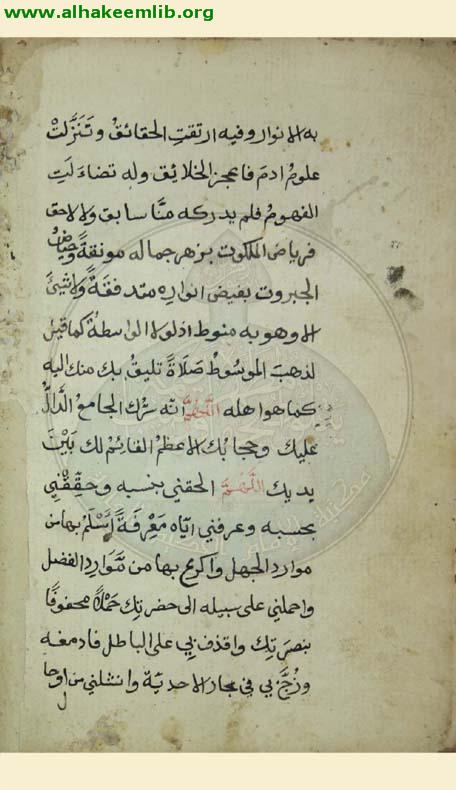 www.alhakeemlib.org
به الانوار وفيه ارتقت الحقائق وتنزلت
علوم ادم فاعجز الخلائق وله تضاءلت
الفهوم فلم يدركه منا سابق ولا لاحق
فرياض الملكوت بزهر جماله مونقة وحياض
الجبروت بفيض انواره متدفقة ولا شئ
الا وهو به منوط اذ لولا الواسطة كما قيل
لذهب الموسوط صلاة تليق بك منك اليه
كما هو اهله اللهم انه سرك الجامع الدال
عليك وحجابك الاعظم القائم لك بين
يديك اللهم الحقني بنسبه وحققني
بحسبه وعرفني اياه معرفة اسلم بها من
موارد الجهل واكرع بها من موارد الفضل
واحملني على سبيله الى حضرتك حملا محفوفا
بنصرتك واقذف بي على الباطل فادمغه
وزج بي في بحار الاحدية وانشلني من اوحا
ل